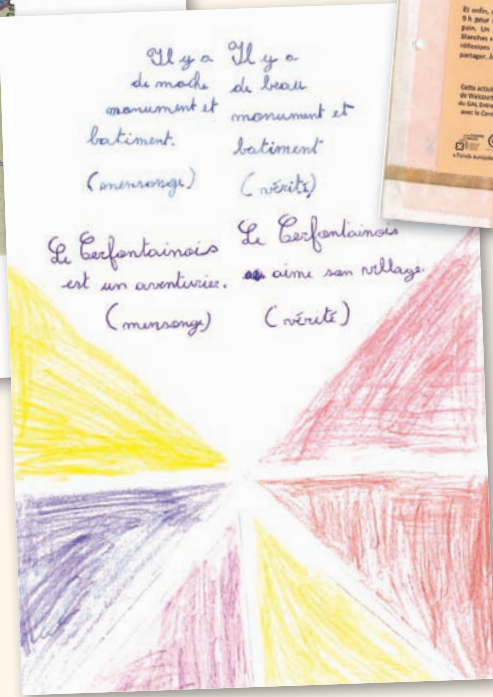 Il y a
de moche
monument et
batiment.
(mensonge)
Il y a
de beau
monument et
batiment
(vérité)
Le Cerfontainois
est un aventurier.
(mensonge)
Le Cerfontainois
aime son village
(vérité)
Et enfin,
9 h pour
pain. Un
Blanches
réflexions
partager. À
Cette activit
de Walcourt
du GAL Entre
avec le Cent
« Fonds europé